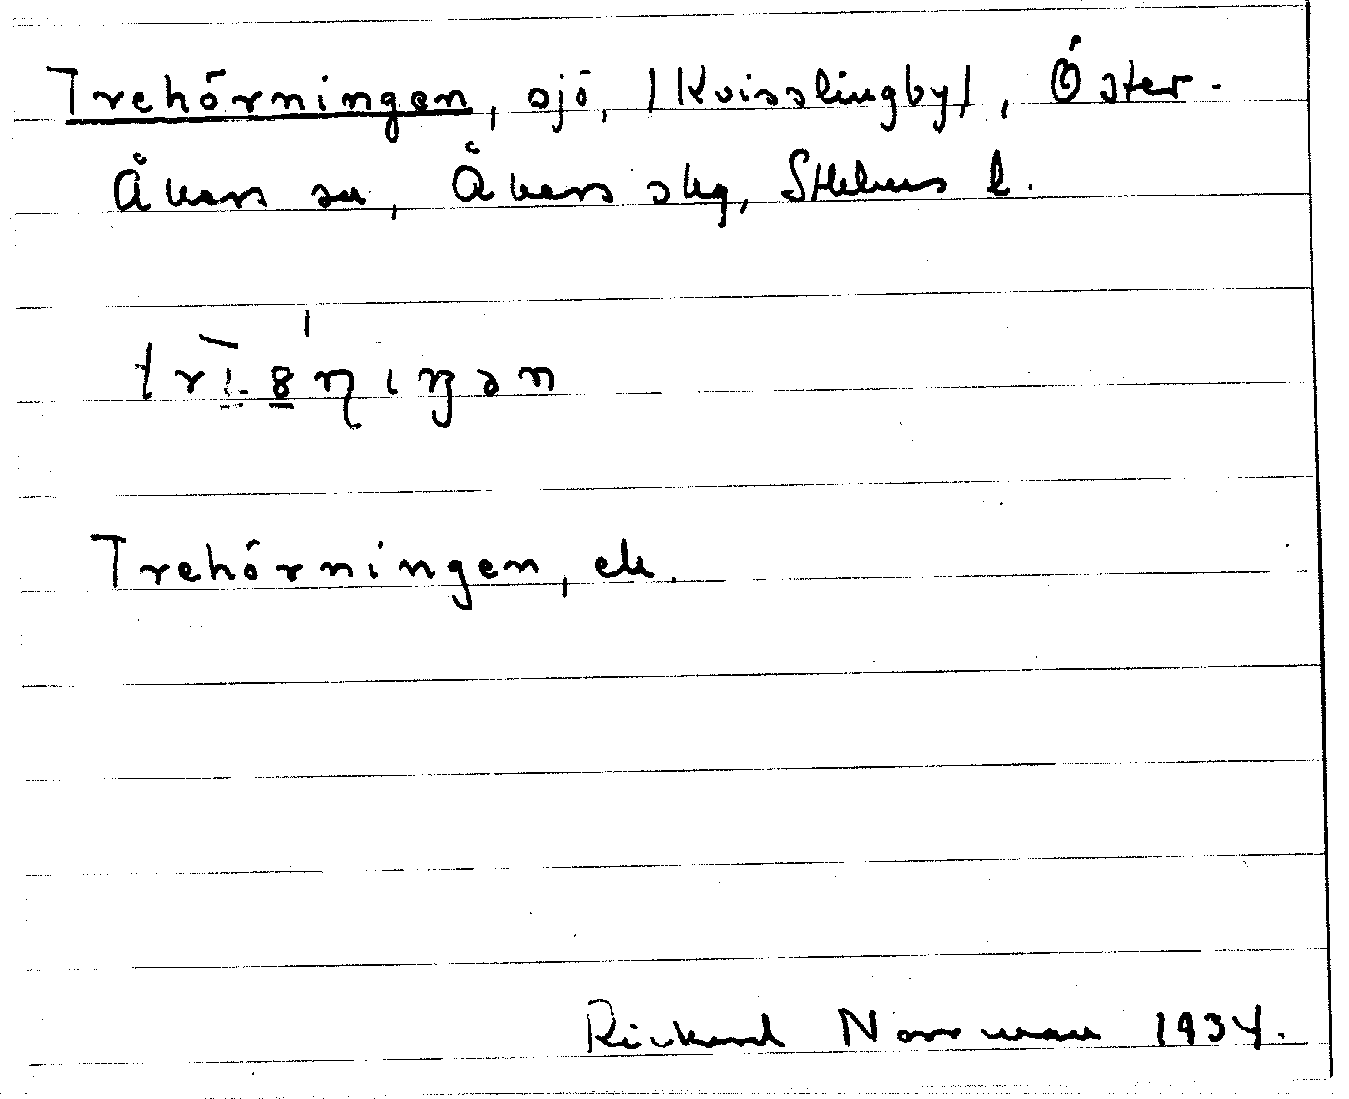 Trehörningen, sjö, /Kvisslingby/, Öster-
Åkers sn, Åkers skg, Sthlms l.
Trehörningen, ek.
Rickard Norrman 1934.